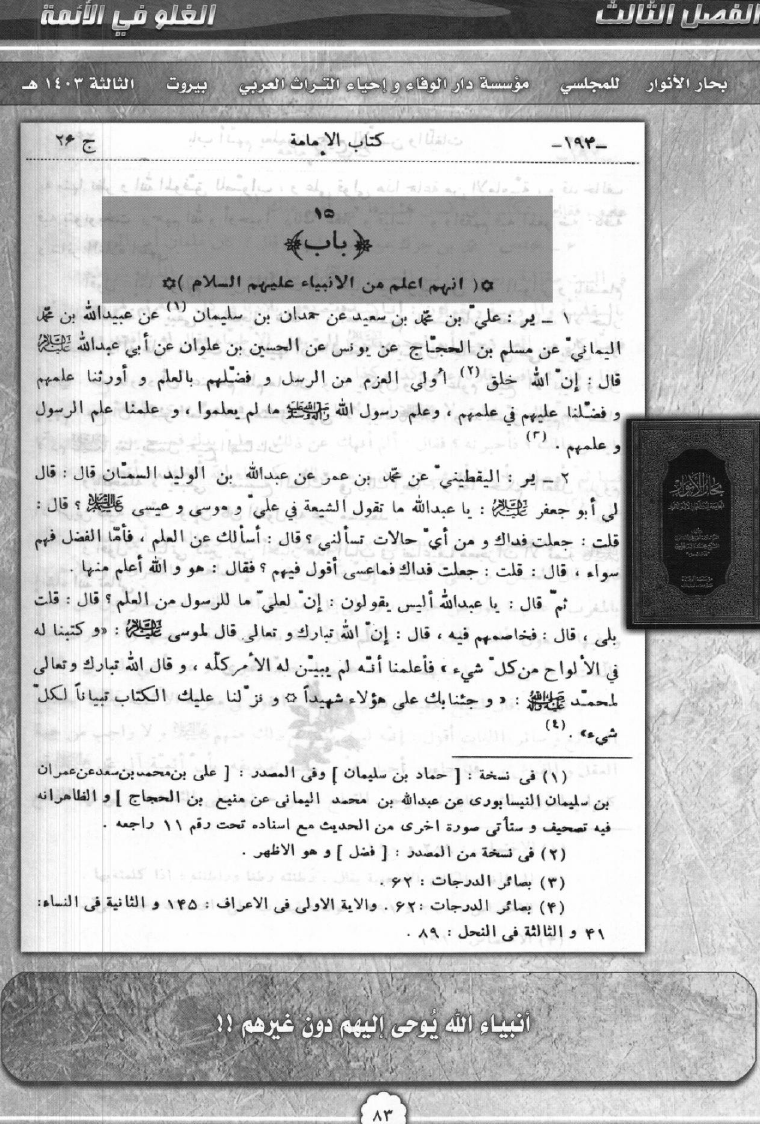 الفصل الثالث
الغلو في الأئمة
بحار الأنوار للمجلسي مؤسسة دار الوفاء و إحياء التراث العربي بيروت الثالثة ١٤٠٣ هـ
ـ١٩٤ـ كتاب الإمامة ج ٢۶
١۵
﴿ باب ﴾
✡( انهم اعلم من الانبياء عليهم السلام )✡
١ ـ ير : عليّ بن محمّد بن سعيد عن حمدان بن سليمان (١) عن عبيدالله بن محمّد
اليمانيّ عن مسلم بن الحجّاج عن يونس عن الحسين بن علوان عن أبي عبدالله عليه السلام
قال : إنّ الله خلق (٢) اُولي العزم من الرسل و فضّلهم بالعلم و أورثنا علمهم
و فضّلنا عليهم في علمهم ، وعلم رسول الله صلى الله عليه وآله ما لم يعلموا ، و علمنا علم الرسول
و علمهم . (٣)
٢ ـ ير : اليقطينيّ عن محمّد بن عمر عن عبدالله بن الوليد السمّان قال : قال
لي أبو جعفر عليه السلام : يا عبدالله ما تقول الشيعة في عليّ و موسى و عيسى عليهم السلام ؟ قال :
قلت : جعلت فداك و من أيّ حالات تسألني ؟ قال : أسألك عن العلم ، فأمّا الفضل فهم
سواء ، قال : قلت : جعلت فداك فماعسى أقول فيهم ؟ فقال : هو و الله أعلم منها .
ثمّ قال : يا عبدالله أليس يقولون : إنّ لعليّ ما للرسول من العلم ؟ قال : قلت
بلى ، قال : فخاصمهم فيه ، قال : إنّ الله تبارك و تعالى قال لموسى عليه السلام : «و كتبنا له
في الألواح من كلّ شيء » فأعلمنا أنّه لم يبيّن له الأمر كلّه ، و قال الله تبارك وتعالى
لمحمّد صلى الله عليه وآله : « و جئنا بك على هؤلاء شهيداً ✡ و نزّلنا عليك الكتاب تبياناً لكلّ
شيء» . (٤)
(١) فى نسخة : [ حماد بن سليمان ] وفى المصدر : [ على بن محمد بن سعد عن عمران
بن سليمان النيسابورى عن عبدالله بن محمد اليمانى عن منيع بن الحجاج ] و الظاهر انه
فيه تصحيف و ستأتى صورة اخرى من الحديث مع اسناده تحت رقم ١١ راجعه .
(٢) فى نسخة من المصدر : [ فضل ] و هو الاظهر .
(٣) بصائر الدرجات : ۶٢ .
(۴) بصائر الدرجات : ۶٢ . والاية الاولى فى الاعراف : ١۴۵ و الثانية فى النساء:
۴١ و الثالثة فى النحل : ٨٩ .
بحار الأنوار
أنبياء الله يُوحى إليهم دون غيرهم !!
٨٣